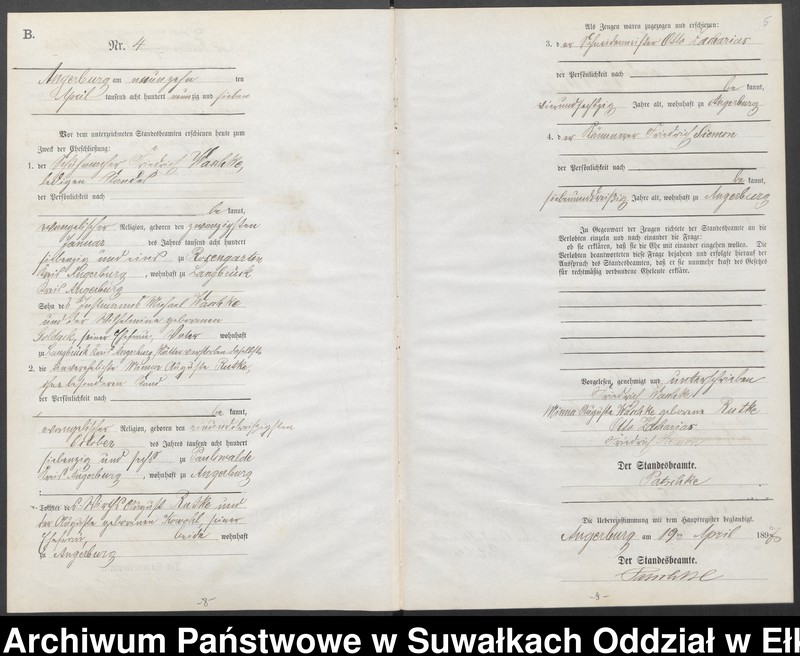 B.
Nr. 4
Angerburg am neunzehn ten
April tausend acht hundert neunzig und sieben
Vor dem unterzeichneten Standesbeamten erschienen heute zum
Zweck der Eheschließung:
1. der Friedrich Waschke,
ledigen Standes
der Persönlichkeit nach
be kannt,
evangelischer Religion, geboren den zwanzigsten
Januar des Jahres tausend acht hundert
siebenzig und eins zu Rosengarten
Kreis Angerburg, wohnhaft zu
Kreis Angerburg
Sohn des Michael Waschke
und der Wilhelmine geborenen
seiner Ehefrau, Vater wohnhaft
zu Kreis Angerburg, Mutter verstorben daselbst
2. die unverehelichte Minna Auguste Rutke,
ohne besonderen Stand
der Persönlichkeit nach
be kannt,
evangelischer Religion, geboren den einunddreißigsten
Oktober des Jahres tausend acht hundert
siebenzig und sechs zu Paulswalde
Kreis Angerburg, wohnhaft zu Angerburg
Tochter des Wirths August Rutke und
der Auguste geborenen seiner
Ehefrau, beide wohnhaft
zu Angerburg
-8-
5
Als Zeugen waren zugezogen und erschienen:
3. der Schneidermeister Otto Zacharias
der Persönlichkeit nach
be kannt,
vierundsechzig Jahre alt, wohnhaft zu Angerburg
4. der Friedrich Siemon
der Persönlichkeit nach
be kannt,
siebenunddreißig Jahre alt, wohnhaft zu Angerburg
In Gegenwart der Zeugen richtete der Standesbeamte an die
Verlobten einzeln und nach einander die Frage:
ob sie erklären, daß sie die Ehe mit einander eingehen wollen. Die
Verlobten beantworteten diese Frage bejahend und erfolgte hierauf der
Ausspruch des Standesbeamten, daß er sie nunmehr kraft des Gesetzes
für rechtmäßig verbundene Eheleute erkläre.
Vorgelesen, genehmigt und unterschrieben
Friedrich Waschke
Minna Auguste Waschke geborene Rutke
Otto Zacharias
Friedrich Siemon
Der Standesbeamte.
Die Uebereinstimmung mit dem Hauptregister beglaubigt.
Angerburg am 19ten April 1897
Der Standesbeamte.
-8-
Archiwum Państwowe w Suwałkach Oddział w Ełk